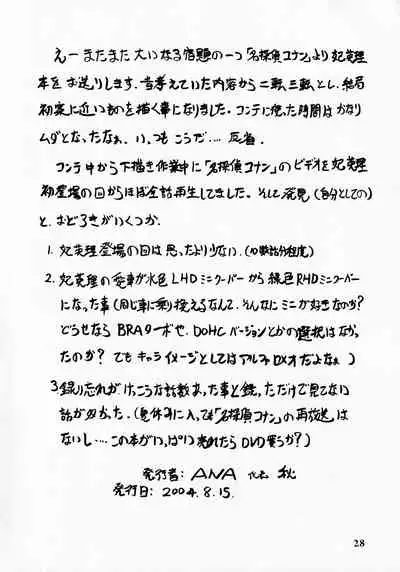 えー またまた 大いなる宿題の一つ「名探偵コナン」より妃英理
本を お送りします。当考えていた内容から二転、三転とし、結局
初案に近いものを描く事になりました。コンテに使った時間は かなり
ムダとなったなぁ。いつもこうだ…. 反省。
コンテ中から下描き作業中に「名探偵コナン」のビデオを妃英理
初登場の回からほぼ全話再生してました。そして発見(自分としての)
と、おどろきがいくつか。
1. 妃英理登場の回は思ったより少ない。(10数話分程度)
2. 妃英理の愛車が水色LHDミニクーパーから緑色RHDミニクーパー
になった事(同じ車に乗り換えるなんて、そんなにミニが好きなのか?
どうせなら BRAターボや、DOHCバージョンとかの選択はなかっ
たのか? でもキャライメージとしてはアルファロメオだよなぁ)
3.録り忘れがけっこうな話数あった事と録っただけで見てない
話が多かった。(夏休みに入っても「名探偵コナン」の再放送は
ないし…. この本がいっぱい売れたらDVD買うか?)
発行者: ANA 代表 秋
発行日: 2004.8.15.
28